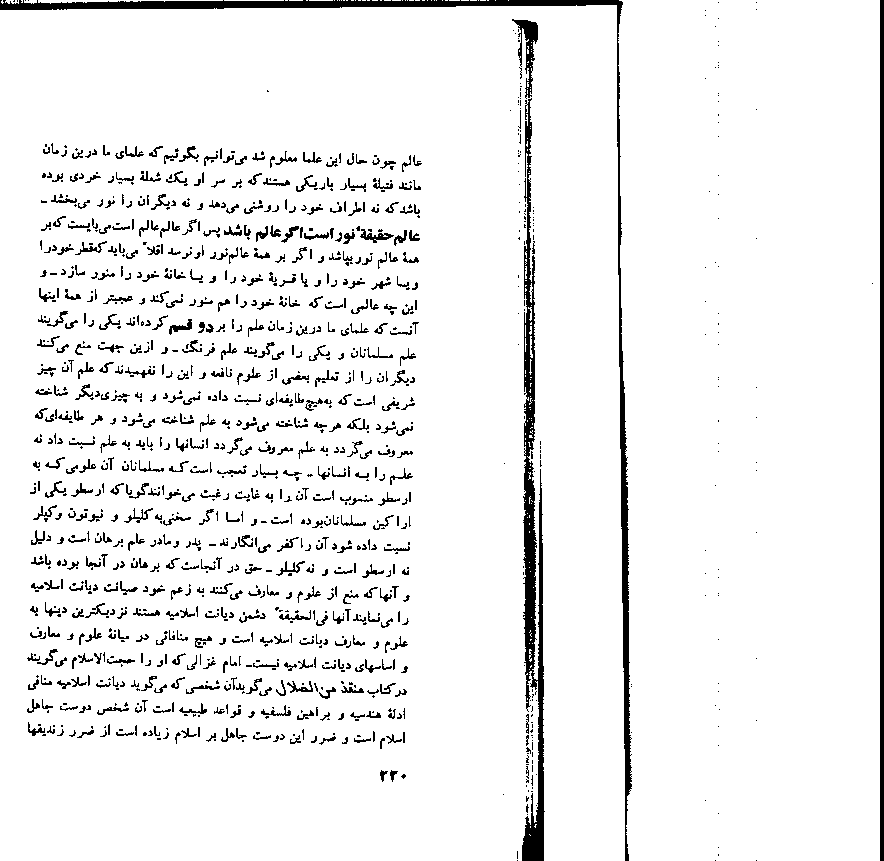 عالم چون حال این علما معلوم شد می‌توانیم بگوئیم که علمای ما درین زمان
مانند فتیلهٔ بسیار باریکی هستند که بر سر او یک شعلهٔ بسیار خردی بوده
باشد که نه اطراف خود را روشنی می‌دهد و نه دیگران را نور می‌بخشد ـ
عالم حقیقة نور است اگر عالم باشد پس اگر عالم عالم است می‌بایست که بر
همهٔ عالم نور بپاشد و اگر بر همهٔ عالم نور او نرسد اقلاً می‌باید که قطر خود را
ویا شهر خود را و یا قریهٔ خود را و یا خانهٔ خود را منور سازد ـ و
این چه عالمی است که خانهٔ خود را هم منور نمی‌کند و عجبتر از همهٔ اینها
آنست که علمای ما درین زمان علم را بر دو قسم کرده‌اند یکی را می‌گویند
علم مسلمانان و یکی را می‌گویند علم فرنگ ـ و ازین جهت منع می‌کنند
دیگران را از تعلیم بعضی از علوم نافعه و این را نفهمیدند که علم آن چیز
شریفی است که به‌هیچ طایفه‌ای نسبت داده نمی‌شود و به چیزی دیگر شناخته
نمی‌شود بلکه هرچه شناخته می‌شود به علم شناخته می‌شود و هر طایفه‌ای که
معروف می‌گردد به علم معروف می‌گردد انسانها را باید به علم نسبت داد نه
علم را به انسانها ـ چه بسیار تعجب است که مسلمانان آن علومی که به
ارسطو منسوب است آن را به غایت رغبت می‌خوانند گویا که ارسطو یکی از
اراکین مسلمانان بوده است ـ و اما اگر سخنی به کلیلو و نیوتون وکپلر
نسبت داده شود آن را کفر می‌انگارند ـ پدر و مادر علم برهان است و دلیل
نه ارسطو است و نه کلیلو ـ حق در آنجاست که برهان در آنجا بوده باشد
و آنها که منع از علوم و معارف می‌کنند به زعم خود صیانت دیانت اسلامیه
را می‌نمایند آنها فی‌الحقیقة دشمن دیانت اسلامیه هستند نزدیکترین دینها به
علوم و معارف دیانت اسلامیه است و هیچ منافاتی در میانهٔ علوم و معارف
و اساسهای دیانت اسلامیه نیست ـ امام غزالی که او را حجت‌الاسلام می‌گویند
در کتاب منقذ من الضلال می‌گوید آن شخصی که می‌گوید دیانت اسلامیه منافی
ادلهٔ هندسیه و براهین فلسفیه و قواعد طبیعیه است آن شخص دوست جاهل
اسلام است و ضرر این دوست جاهل بر اسلام زیاده است از ضرر زندیقها
۲۲۰